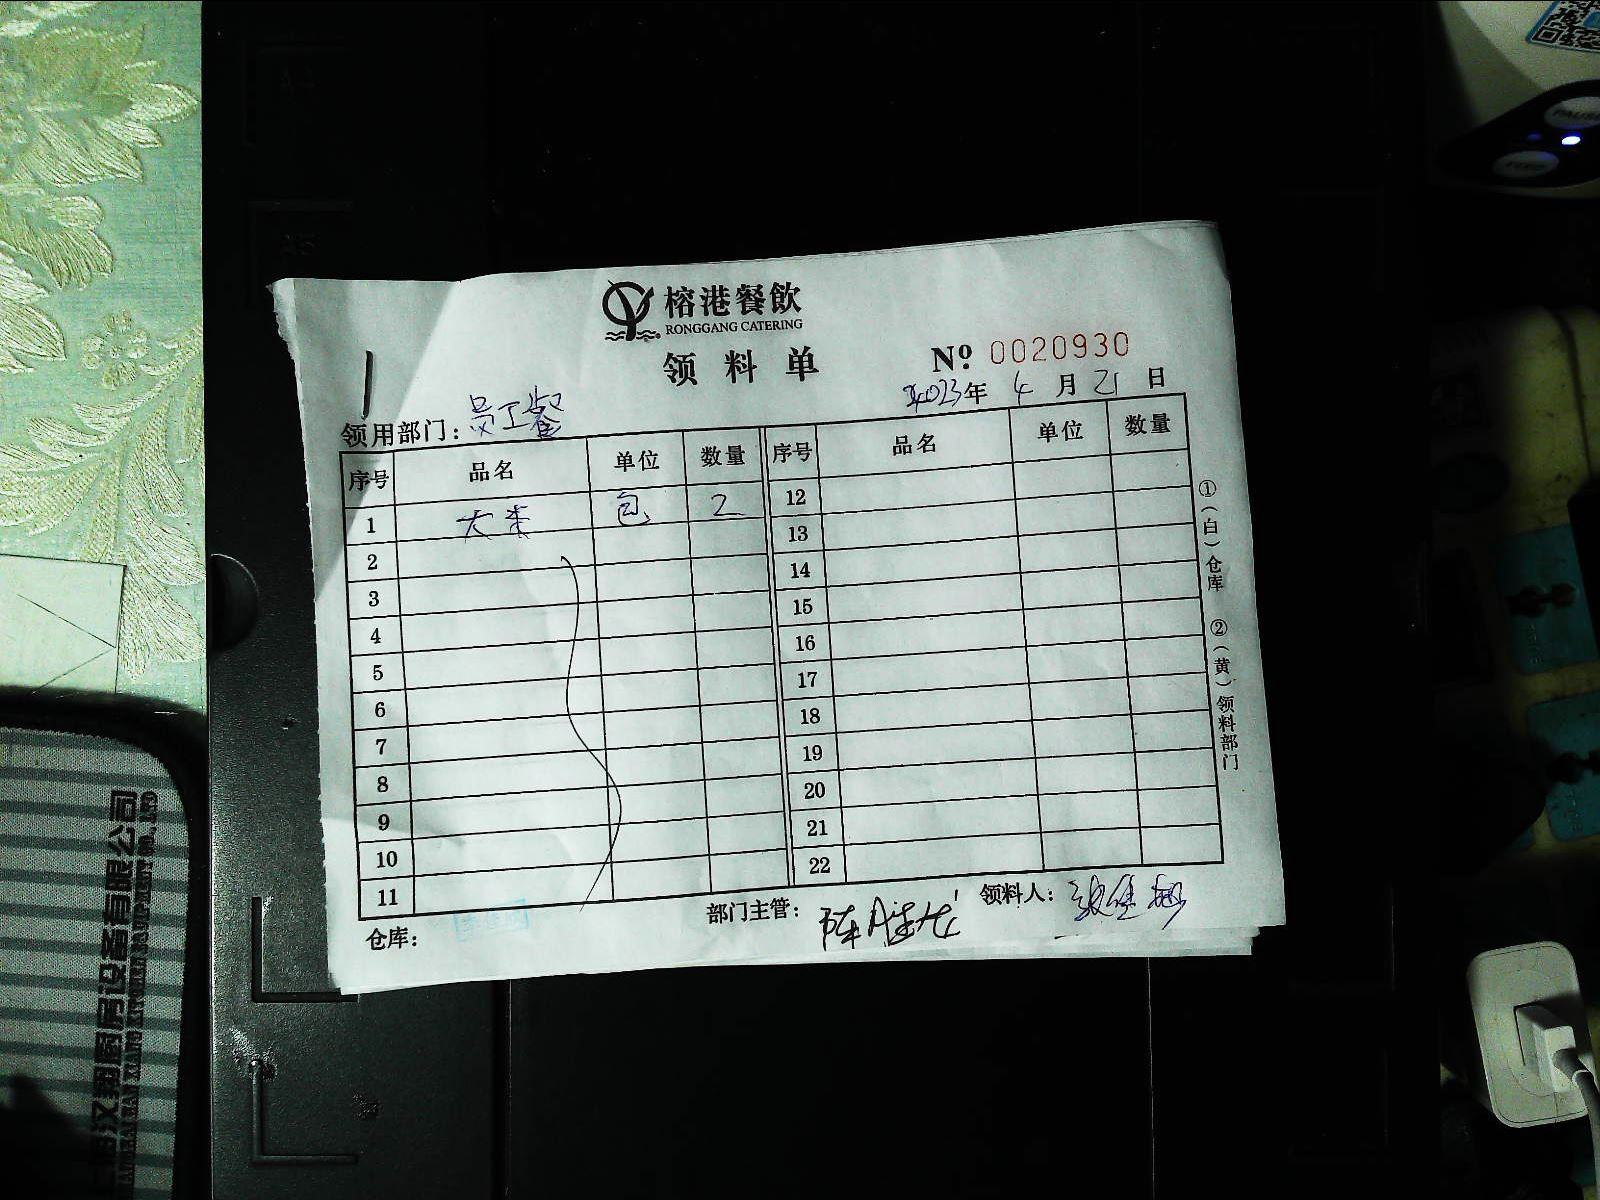 榕港餐飲
RONGGANG CATERING
领料单
Nº 0020930
2023年 4月 21日
领用部门：员工餐
序号 品名 单位 数量 序号 品名 单位 数量
1 大米 包 2 12
2 13
3 14
4 15
5 16
6 17
7 18
8 19
9 20
10 21
11 22
①（白）仓库 ②（黄）领料部门
仓库： 部门主管： 领料人：
汉翔厨房设备有限公司